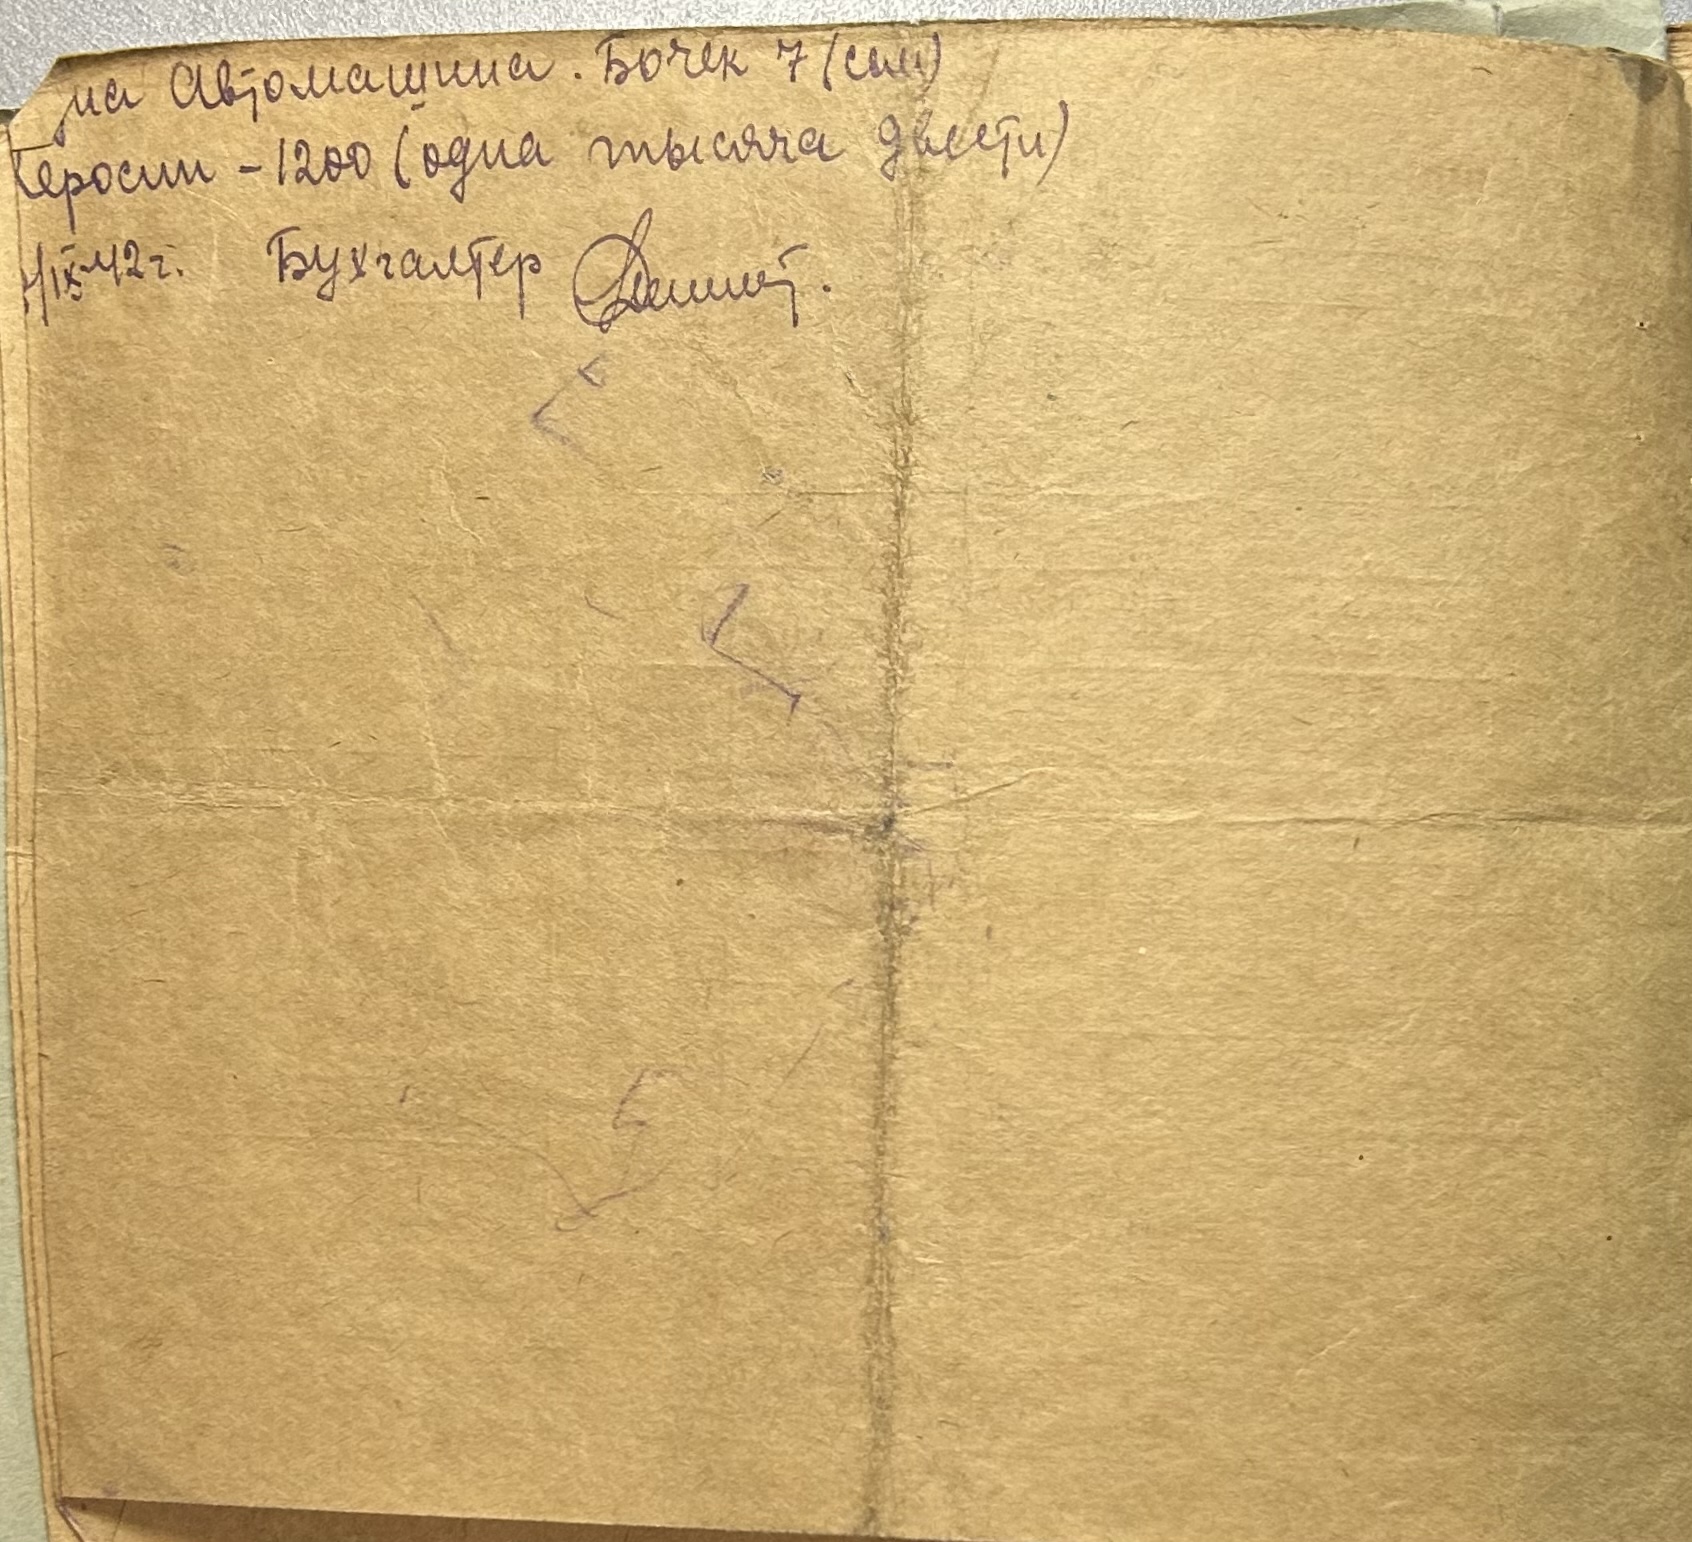 на Автомашина. Бочек 7 (сем)
Керосин - 1200 (одна тысяча двести)
/IX-42г. Бухгалтер